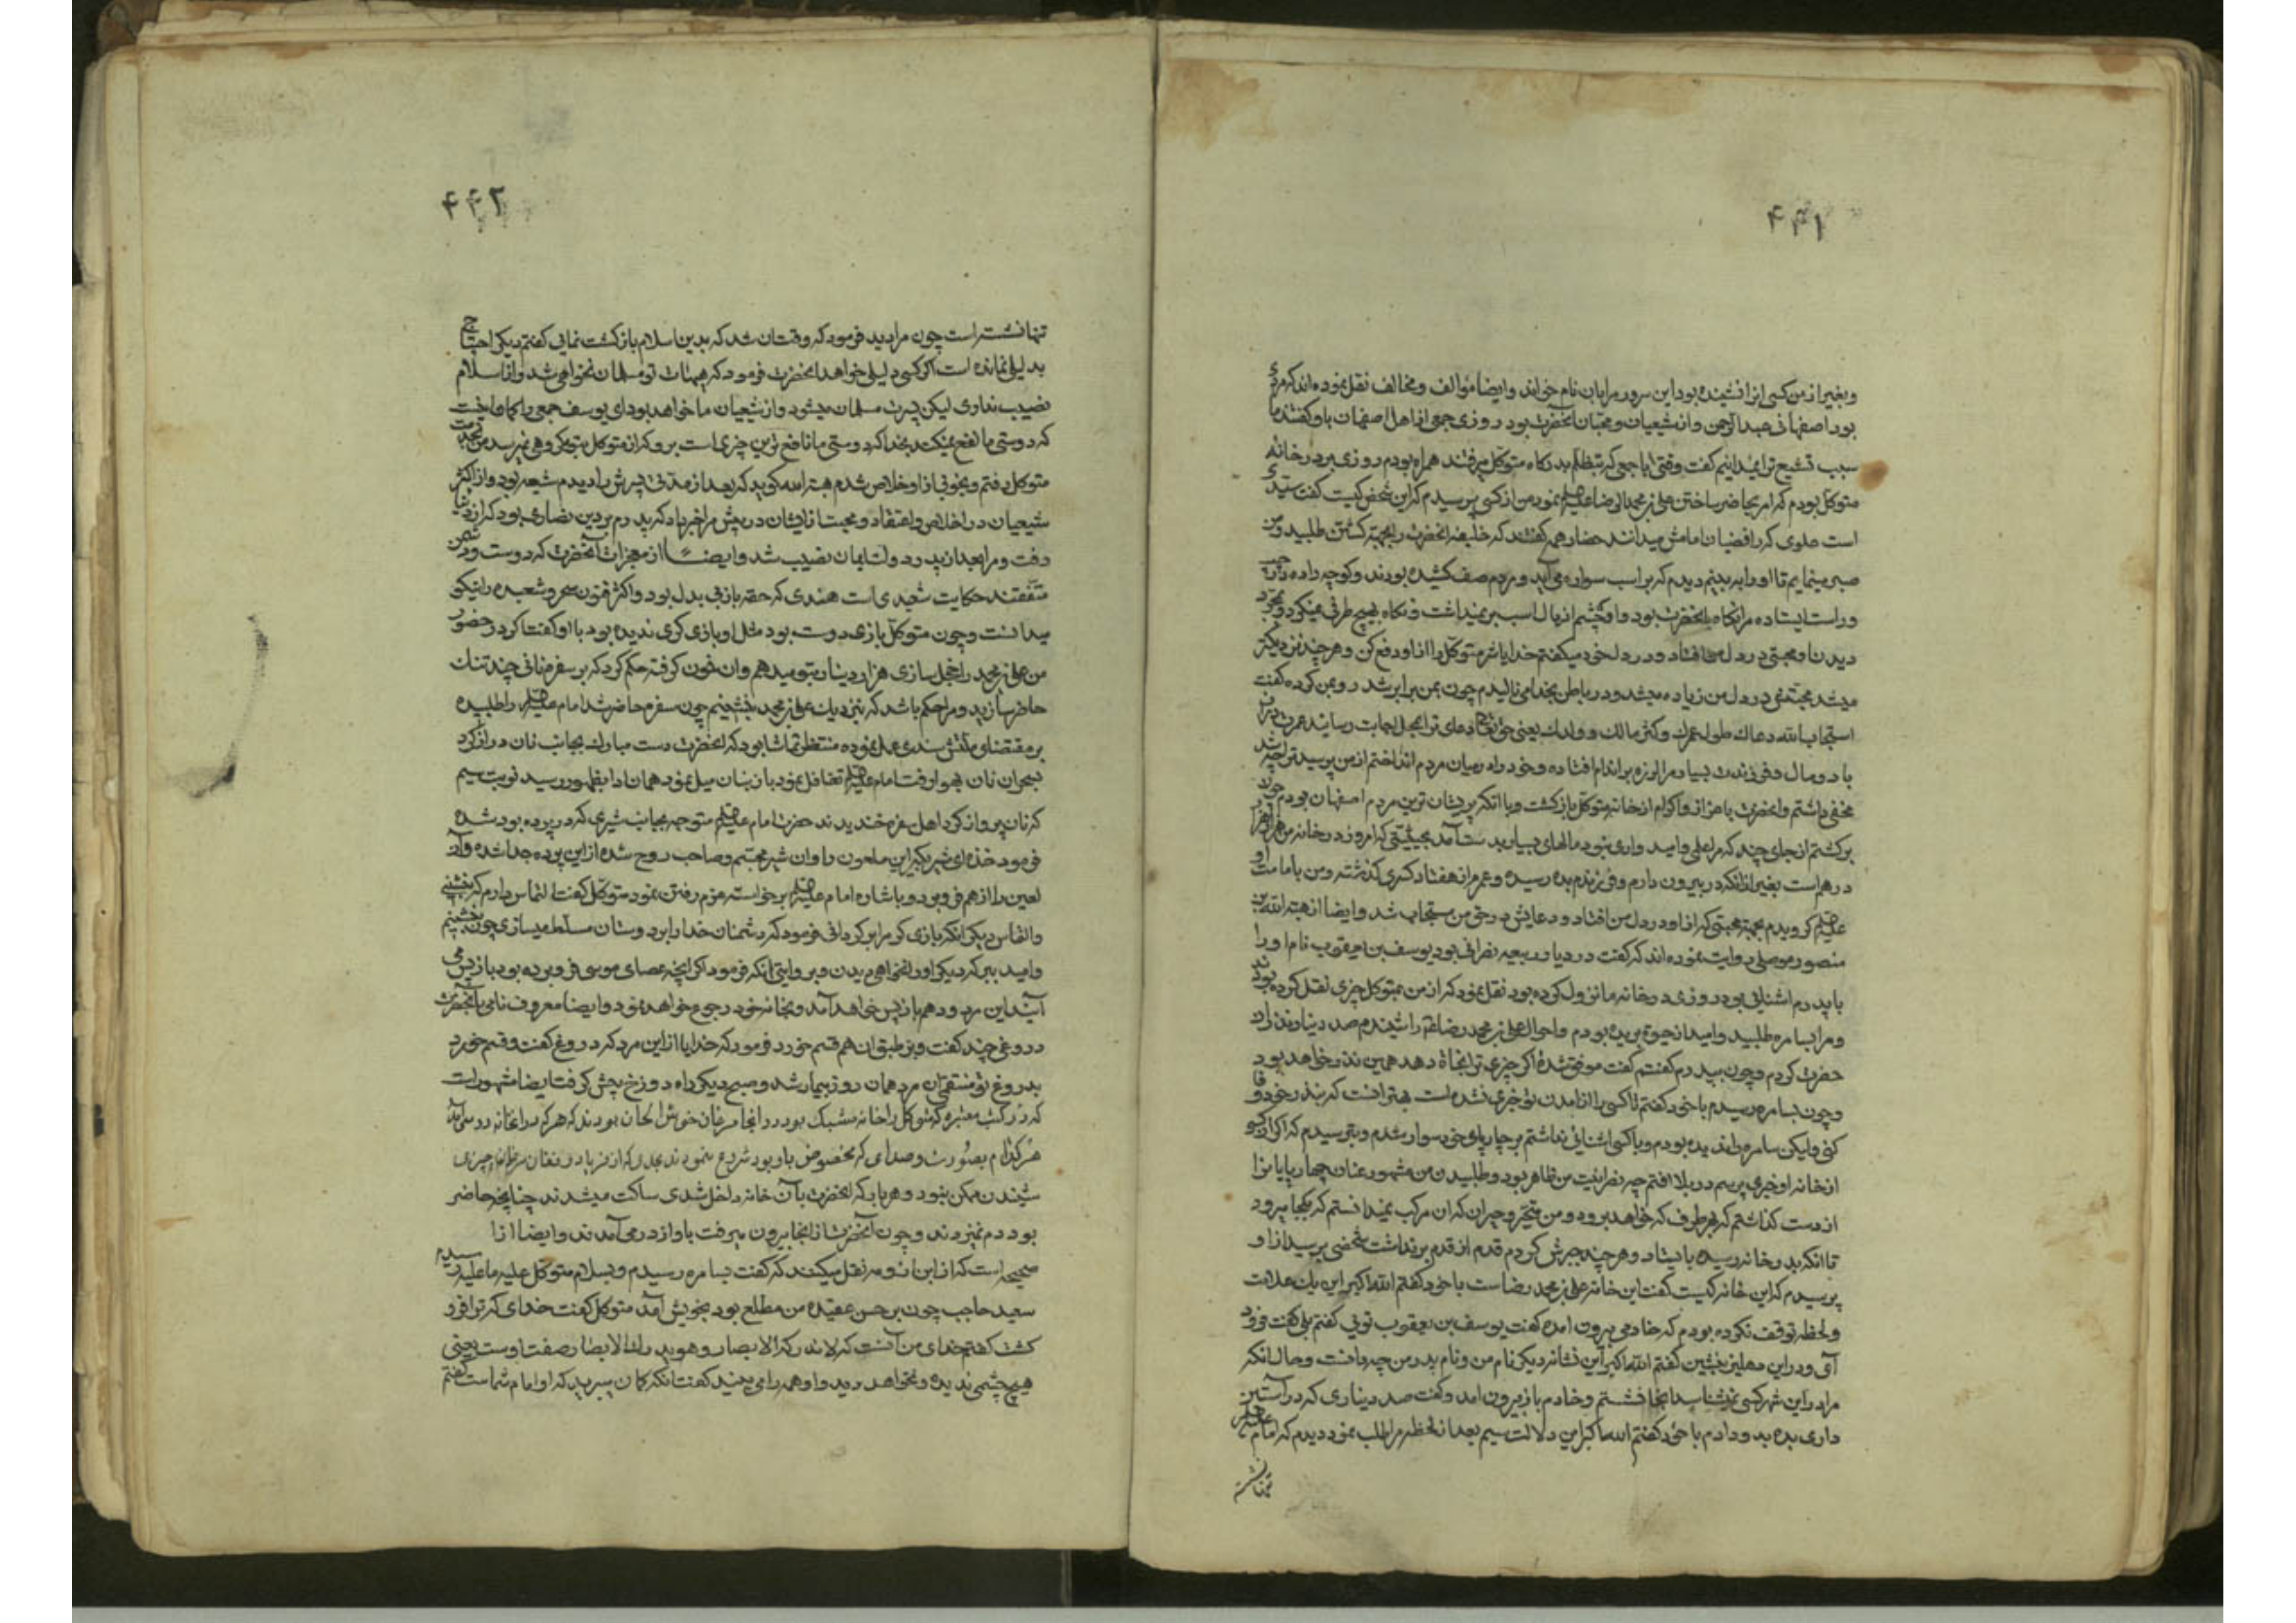 ۴۴۱
وبغیر از من کسی انرا نشنیده بود این سرور مرا بان نام خواند وایضا مؤالف ومخالف نقل نموده اند که مردی
بود اصفهانی عبدالرحمن واز شیعیان ومحبان آنحضرت بود روزی جمعی از اهل اصفهان باو گفتند ما
سبب تشیع ترا نمیدانیم گفت وقتی با جمعی که بتظلم بدرکاه متوکل میرفتند همراه بودم روزی بر در خانه
متوکل بودم که امر بحاضر ساختن علی بن محمد الرضا علیه نمود من از کسی پرسیدم که این شخص کیست گفت سیدی
است علوی که رافضیان امامش میدانند حضار همه گفتند که خلیفه انحضرت را بجهته کشتن طلبیده ومن
صبر مینمایم تا او را به بینم دیدم که بر اسب سواره می آید ومردم صف کشیده بودند وکوچه داده از چپ
وراست ایستاده مرا نکاه بانحضرت بود واو چشم از یال اسب بر نمیداشت ونکاه بهیچ طرفی نمیکرد وبمجرد
دیدن او محبتی در دل من افتاد ودر دل خود میکفتم خدایا شر متوکل را از او دفع کن وهر چند نزدیکتر
میشد محبتش در دل من زیاده میشد ودر باطن بخدا می نالیدم چون بمن برابر شد رو بمن کرده گفت
استجاب الله دعاك طول عمرك وكثر مالك وولدك یعنی حق تعالی دعای ترا بمحل اجابت رساند عمرت دراز
باد ومال وفرزندت بسیار مرا لرزه بر اندام افتاده وخود را در میان مردم انداختم از من پرسیدند ترا چه شد
مخفی داشتم وانحضرت باعزاز واکرام از خانه متوکل باز کشت وبا انکه پریشان ترین مردم اصفهان بودم چون
برکشتم از جای چند که مرا علم وامید واری نبود مالهای بسیار بدست آمد بحیثیتی که امروز در خانه من هزار هزار
درهم است بغیر از انکه در بیرون دارم وفرزندم بده رسیده وعمرم از هفتاد کسری کذشته ومن بامامت او
علیه کرویدم بجهته محبتی که از او در دل من افتاد ودعایش در حق من مستجاب شد وایضا از هبته الله بن
منصور موصلی روایت نموده اند که گفت در دیار ربیعه نصرانی بود یوسف بن یعقوب نام او را
با پدرم اشنائی بود روزی در خانه ما نزول کرده بود نقل نمود که از من بمتوکل چیزی نقل کرده بودند
ومرا بسامره طلبید وامید از حیوة بریده بودم واحوال علی بن محمد رضا را شنیدم صد دینار نذر ان
حضرت کردم وچون بپدرم گفتم گفت موفق شدهٔ اکر چیزی ترا نجاة دهد همین نذر خواهد بود
وچون بسامره رسیدم با خود گفتم تا کسی را از آمدن تو خبری نشده است بهتر انست که بنذر خود وفا
کنی ولیکن سامره را ندیده بودم وبا کسی اشنائی نداشتم بر چارپای خود سوار شدم وبترسیدم که اکر از کسی
از خانه او خبری پرسم در بلا افتم چه نصرانیت من ظاهر بود وطلبیدن من مشهور عنان چهارپایا نرا
از دست کذاشتم که بهر طرف که خواهد برود ومن متحیر وحیران که ان مرکب نمیدانستم که بکجا میرود
تا انکه بدر خانه رسیده بایستاد وهر چند جبرش کردم قدم از قدم بر نداشت شخصی پرسید از او
پرسیدم که این خانه کیست گفت این خانه علی بن محمد رضاست با خود گفتم الله اکبر این یك علامت
ولحظه توقف نکرده بودم که خادمی بیرون امده گفت یوسف بن یعقوب توئی گفتم بلی گفت فرود
آی ودر این دهلیز بنشین گفتم الله اکبر این نشانه دیکر نام من ونام پدر من چه دانست وحال انکه
مرا در این شهر کسی نمیشناسد انجا نشستم وخادم باز بیرون امد وگفت صد دیناری که در آستین
داری بده بدو دادم با خود گفتم الله اکبر این دلالت سیم بعد از لحظه مرا طلب نمود دیدم که امام علیه
تنها نشسته
۴۴۲
تنها نشسته است چون مرا دید فرمود که وقت ان شد که بدین اسلام باز کشت نمائی گفتم دیکر احتیاج
بدلیلی نمانده است اکر کسی دلیلی خواهد انحضرت فرمود که هیهات تو مسلمان نخواهی شد واز اسلام
نصیب نداری لیکن پسرت مسلمان میشود واز شیعیان ما خواهد بود ای یوسف جمعی را کمان اینست
که دوستی ما نفع نمیکند بخدا که دوستی ما نافع ترین چیزی است برو که از متوکل بتو مکروهی نمیرسد من بخدمت
متوکل رفتم وبخوبی از او خلاص شدم هبته الله کوید که بعد از مدتی پسرش را دیدم شیعه بود واز اکثر
شیعیان در اخلاص واعتقاد ومحبت با ایشان در پیش مرا خبر داد که پدرم بر دین نصاری بود که از دنیا
رفت ومرا بعد از پدر دولت ایمان نصیب شد وایضا از معجزات آنحضرت که دوست ودشمن
متفقند حکایت شعبدی است هندی که حقه بازی بدل بود واکثر فنون سحر وشعبده را نیکو
میدانست وچون متوکل بازی دوست بود مثل او بازی کری ندیده بود با او گفت اکر در حضور
من علی بن محمد را خجل سازی هزار دینار بتو میدهم وان خون کرفته حکم کرد که بر سفره نانی چند تنك
حاضر سازید ومرا حکم باشد که نزدیك علی بن محمد بنشینم چون سفره حاضر شد امام علیه را طلبیده
بر مقتضای ملتمس هندی عمل نموده منتظر تماشا بود که انحضرت دست مبارك بجانب نان دراز کرد
بسحر ان نان بهوا رفت امام علیه تغافل نمود باز بنان میل نمود همان ادا بظهور رسید نوبت سیم
که نان پرواز کرد اهل بزم خندیدند حضرت امام علیه متوجه بجانب شیری که در پرده بود شده
فرمود خذه ای شیر بکیر این ملعون را وان شیر مجسم وصاحب روح شده از این پرده جدا شده وآن
لعین را از هم فرو برد وباشاره امام علیه برخواسته عزم رفتن نمود متوکل گفت التماس دارم که بنشینی
والتماس دیکر انکه بازی کر مرا بر کردانی فرمود که دشمنان خدا را بر دوستان مسلط میسازی چون بنشینم
وامید ببر که دیکر او را نخواهی دیدن وبروایتی انکه فرمود اکر انچه عصای موسی فرو برده بود باز پس می
آید این مرد هم باز پس خواهد آمد وبخانه خود رجوع خواهد نمود وایضا معروف نامی بانحضرت
دروغی چند گفت وبر طبق ان هم قسم خورد فرمود که خدایا از این مرد که دروغ گفت وقسم خورد
بدروغ تو منتقمی ان مرد همان روز بیمار شد وصبح دیکر راه دوزخ پیش کرفت ایضا مشهور است
که در کتب معتبره که متوکل را خانه مشبک بود در انجا مرغان خوش الحان بودند که هر که در انخانه در می آمد
هر کدام بصورت وصدای که مخصوص باو بود شروع مینمودند بحدی که از فریاد وفغان مرغان چیزی
شنیدن ممکن نبود وهر بار که انحضرت بآن خانه داخل شدی ساکت میشدند چنانچه حاضر
بود دم نمیزدند وچون آنحضرت از انجا بیرون میرفت باواز در می آمدند وایضا از
صحیحه است که از ابن ارومه نقل میکنند که گفت بسامره رسیدم وبسلام متوکل علیه ما علیه رسیدم
سعید حاجب چون بر حسن عقیده من مطلع بود بخویش آمد متوکل گفت خدای که ترا فرو
کشت گفتم خدای من آنست که لا تدرکه الابصار وهو یدرك الابصار صفت اوست یعنی
هیچ چشمی ندیده ونخواهد دید واو همه را می بیند گفت انکه کمان میبرید که او امام شماست گفتم